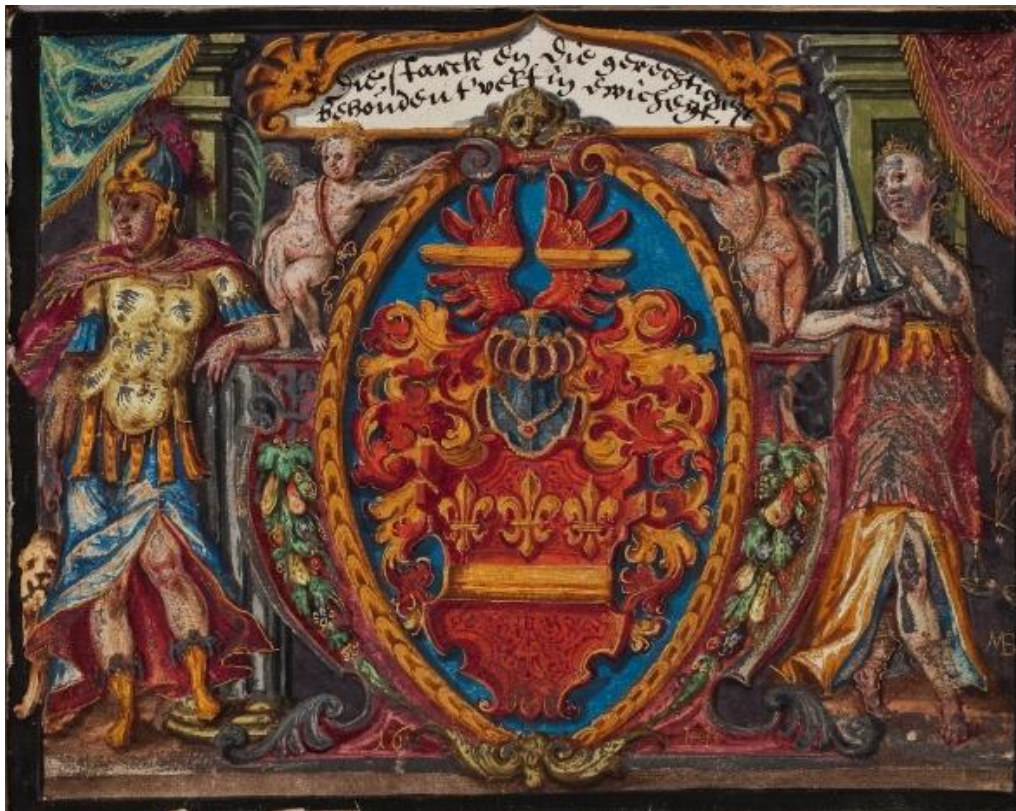 die starck en die gerechticheyt
behouden t'welt in ewichegt.
16